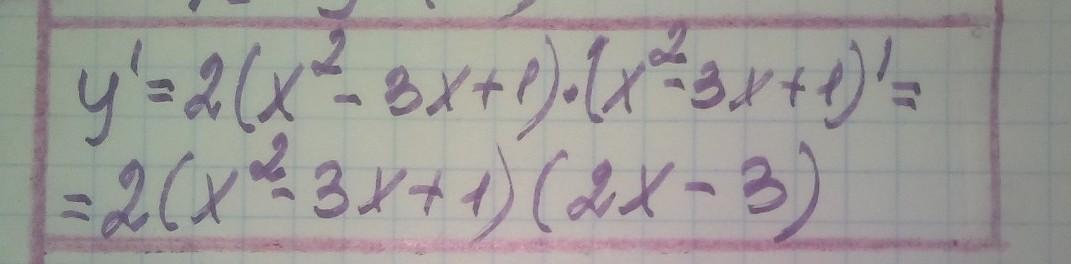 y' = 2(x² - 3x + 1) · (x² - 3x + 1)' =
= 2(x² - 3x + 1)(2x - 3)